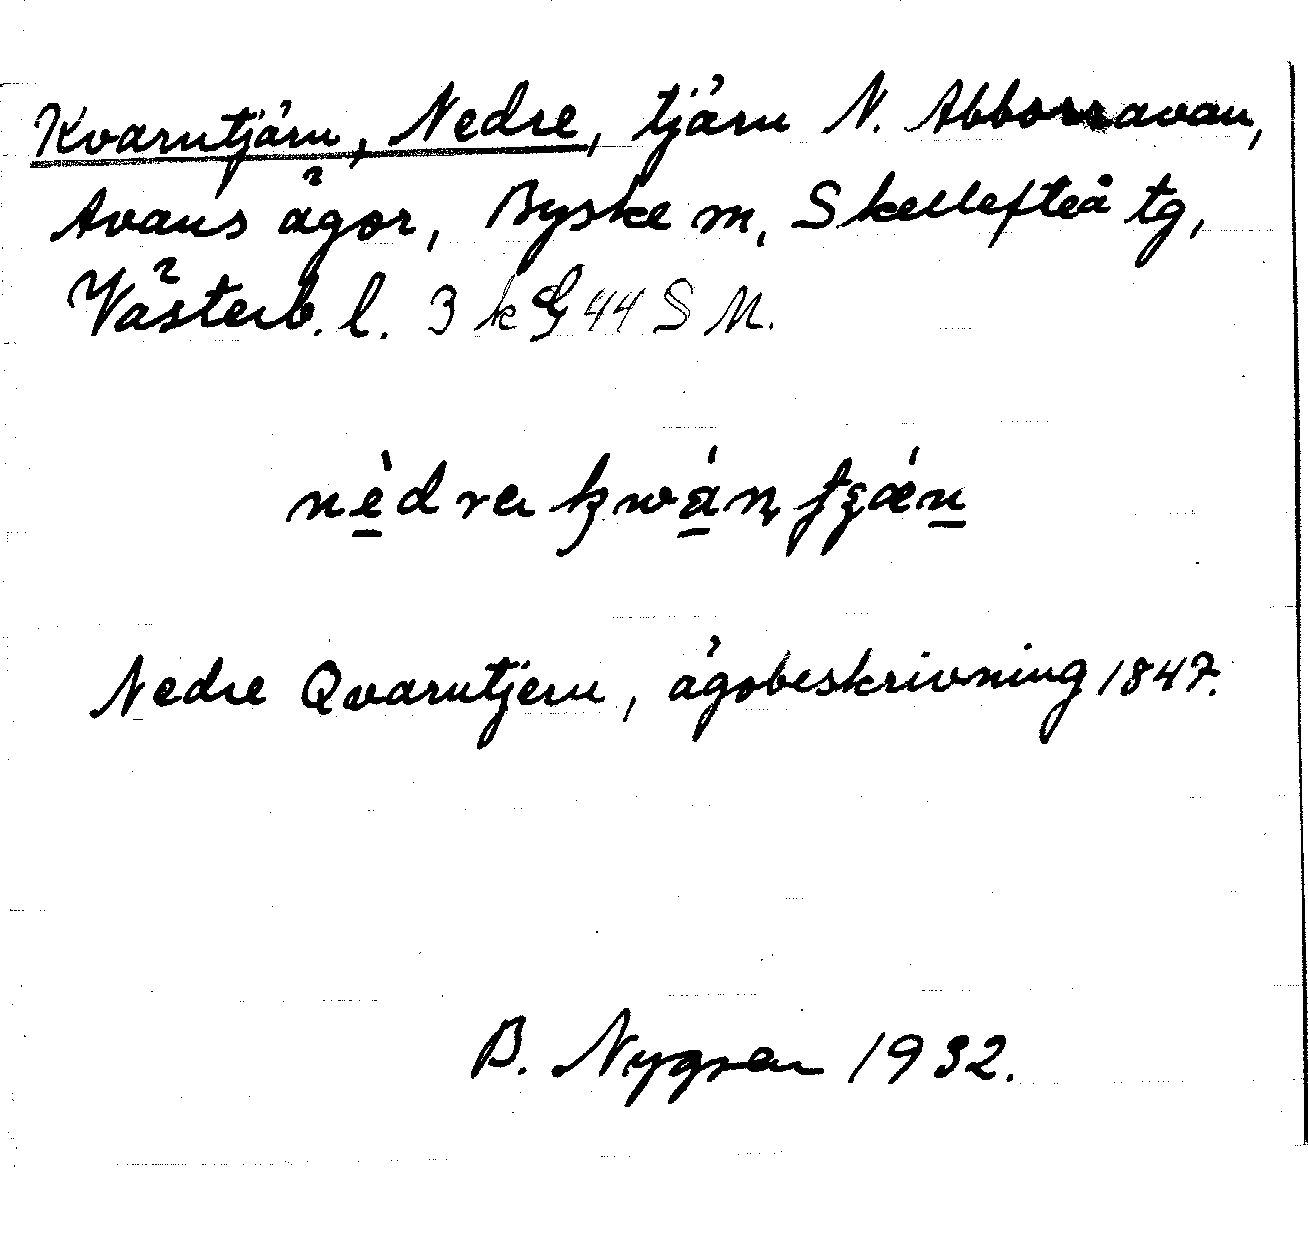 Kvarntjärn, Nedre, tjärn N. Abborravan,
Avans ägor, Byske sn, Skellefteå tg,
Västerb. l. 3 k 44 S M.
nèdra kwán tjǽn
Nedre Qvarntjern, ägobeskrivning 1847.
B. Nygren 1932.